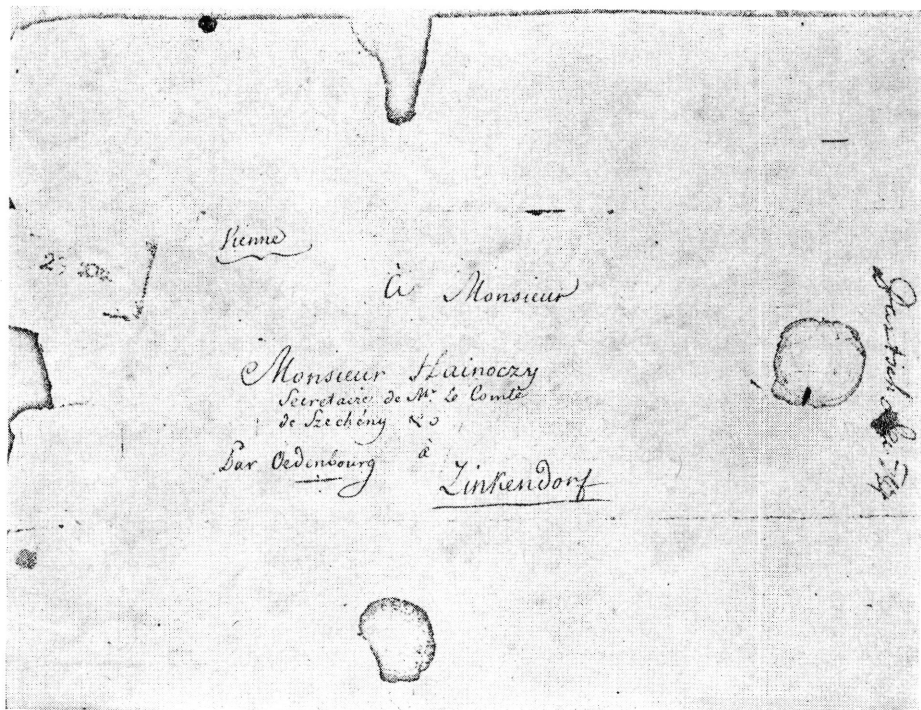 Vienne
à Monsieur
Monsieur Hainoczy
Secretaire de Mr. Le Comte
de Szechény &c
Par Oedenbourg à
Zinkendorf